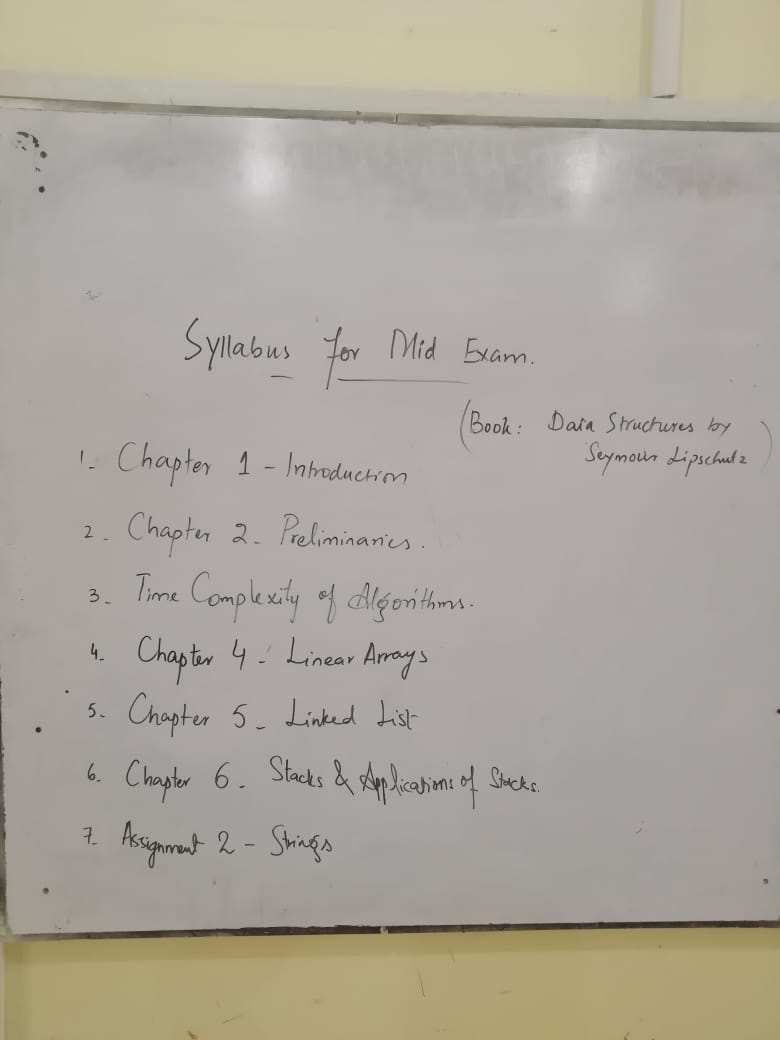 Syllabus for Mid Exam.
(Book: Data Structures by
Seymour Lipschutz)
1- Chapter 1 - Introduction
2- Chapter 2- Preliminaries.
3- Time Complexity of Algorithms.
4- Chapter 4- Linear Arrays
5- Chapter 5- Linked List
6- Chapter 6- Stacks & Applications of Stacks.
7- Assignment 2 - Strings